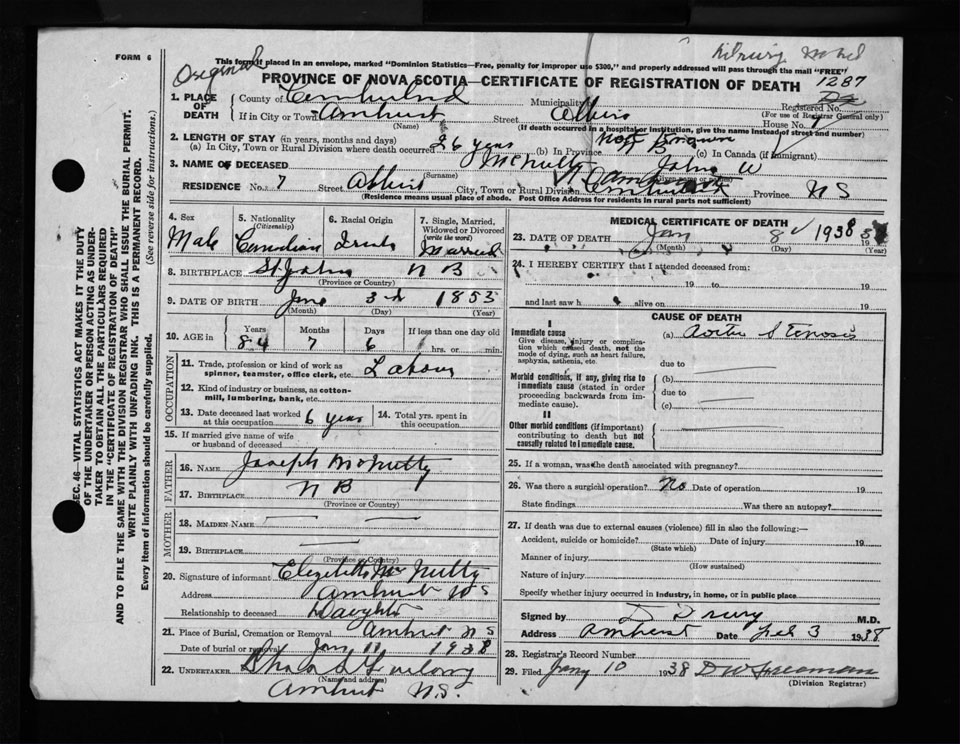 FORM 6
Original
This form if placed in an envelope, marked "Dominion Statistics—Free, penalty for improper use $300," and properly addressed will pass through the mail "FREE"
PROVINCE OF NOVA SCOTIA—CERTIFICATE OF REGISTRATION OF DEATH
1287
1. PLACE OF DEATH
County of Cumberland Municipality Registered No.
(For use of Registrar General only)
If in City or Town Amherst Street Albion House No. 7
(Name)
(If death occurred in a hospital or institution, give the name instead of street and number)
2. LENGTH OF STAY (in years, months and days)
(a) In City, Town or Rural Division where death occurred 26 years (b) In Province Not Known (c) In Canada (if immigrant)
3. NAME OF DECEASED McNutty John W
(Surname)
RESIDENCE No. 7 Street Albion City, Town or Rural Division Province N S
(Residence means usual place of abode. Post Office Address for residents in rural parts not sufficient)
4. Sex Male
5. Nationality (Citizenship) Canadian
6. Racial Origin Irish
7. Single, Married, Widowed or Divorced (write the word) Married
8. BIRTHPLACE St Johns N B
(Province or Country)
9. DATE OF BIRTH June 3rd 1853
(Month) (Day) (Year)
10. AGE in Years 84 Months 7 Days 6 If less than one day old hrs. or min.
OCCUPATION
11. Trade, profession or kind of work as spinner, teamster, office clerk, etc. Labour
12. Kind of industry or business, as cotton-mill, lumbering, bank, etc.
13. Date deceased last worked at this occupation 6 years
14. Total yrs. spent in this occupation
15. If married give name of wife or husband of deceased
FATHER
16. NAME Joseph McNutty
17. BIRTHPLACE N B
(Province or Country)
MOTHER
18. MAIDEN NAME
19. BIRTHPLACE
(Province or Country)
20. Signature of informant Elizabeth McNutty
Address Amherst N S
Relationship to deceased Daughter
21. Place of Burial, Cremation or Removal Amherst N S
Date of burial or removal Jan 11 1938
22. UNDERTAKER Furlong
(Name and address)
Amherst N.S.
MEDICAL CERTIFICATE OF DEATH
23. DATE OF DEATH Jan 8 1938
(Month) (Day) (Year)
24. I HEREBY CERTIFY that I attended deceased from:
19 to 19
and last saw h alive on 19
CAUSE OF DEATH
I
Immediate cause (a) Aortic Stenosis
Give disease, injury or complication which caused death, not the mode of dying, such as heart failure, asphyxia, asthenia, etc.
due to
Morbid conditions, if any, giving rise to immediate cause (stated in order proceeding backwards from immediate cause).
(b)
due to
(c)
II
Other morbid conditions (if important) contributing to death but not causally related to immediate cause.
25. If a woman, was the death associated with pregnancy?
26. Was there a surgical operation? No Date of operation 19
State findings Was there an autopsy?
27. If death was due to external causes (violence) fill in also the following:—
Accident, suicide or homicide? Date of injury 19
(State which)
Manner of injury
(How sustained)
Nature of injury
Specify whether injury occurred in industry, in home, or in public place
Signed by D Drury M.D.
Address Amherst Date Feb 3 1938
28. Registrar's Record Number
29. Filed Jany 10 1938 D W Freeman
(Division Registrar)
SEC. 46—VITAL STATISTICS ACT MAKES IT THE DUTY
OF THE UNDERTAKER OR PERSON ACTING AS UNDER-
TAKER TO OBTAIN ALL THE PARTICULARS REQUIRED
IN THE "CERTIFICATE OF REGISTRATION OF DEATH"
AND TO FILE THE SAME WITH THE DIVISION REGISTRAR WHO SHALL ISSUE THE BURIAL PERMIT.
WRITE PLAINLY WITH UNFADING INK. THIS IS A PERMANENT RECORD.
Every item of information should be carefully supplied. (See reverse side for instructions.)